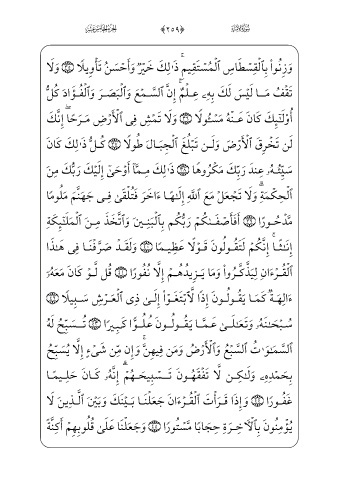 سُورَةُ الإِسْرَاءِ ﴿٢٥٩﴾ الجُزْءُ الخَامِسَ عَشَرَ
وَزِنُوا۟ بِٱلْقِسْطَاسِ ٱلْمُسْتَقِيمِ ۚ ذَٰلِكَ خَيْرٌ وَأَحْسَنُ تَأْوِيلًا وَلَا
تَقْفُ مَا لَيْسَ لَكَ بِهِۦ عِلْمٌ ۚ إِنَّ ٱلسَّمْعَ وَٱلْبَصَرَ وَٱلْفُؤَادَ كُلُّ
أُو۟لَٰٓئِكَ كَانَ عَنْهُ مَسْـُٔولًا وَلَا تَمْشِ فِى ٱلْأَرْضِ مَرَحًا ۖ إِنَّكَ
لَن تَخْرِقَ ٱلْأَرْضَ وَلَن تَبْلُغَ ٱلْجِبَالَ طُولًا كُلُّ ذَٰلِكَ كَانَ
سَيِّئُهُۥ عِندَ رَبِّكَ مَكْرُوهًا ذَٰلِكَ مِمَّآ أَوْحَىٰٓ إِلَيْكَ رَبُّكَ مِنَ
ٱلْحِكْمَةِ ۗ وَلَا تَجْعَلْ مَعَ ٱللَّهِ إِلَٰهًا ءَاخَرَ فَتُلْقَىٰ فِى جَهَنَّمَ مَلُومًا
مَّدْحُورًا أَفَأَصْفَىٰكُمْ رَبُّكُم بِٱلْبَنِينَ وَٱتَّخَذَ مِنَ ٱلْمَلَٰٓئِكَةِ
إِنَٰثًا ۚ إِنَّكُمْ لَتَقُولُونَ قَوْلًا عَظِيمًا وَلَقَدْ صَرَّفْنَا فِى هَٰذَا
ٱلْقُرْءَانِ لِيَذَّكَّرُوا۟ وَمَا يَزِيدُهُمْ إِلَّا نُفُورًا قُل لَّوْ كَانَ مَعَهُۥٓ
ءَالِهَةٌ كَمَا يَقُولُونَ إِذًا لَّٱبْتَغَوْا۟ إِلَىٰ ذِى ٱلْعَرْشِ سَبِيلًا
سُبْحَٰنَهُۥ وَتَعَٰلَىٰ عَمَّا يَقُولُونَ عُلُوًّا كَبِيرًا تُسَبِّحُ لَهُ
ٱلسَّمَٰوَٰتُ ٱلسَّبْعُ وَٱلْأَرْضُ وَمَن فِيهِنَّ ۚ وَإِن مِّن شَىْءٍ إِلَّا يُسَبِّحُ
بِحَمْدِهِۦ وَلَٰكِن لَّا تَفْقَهُونَ تَسْبِيحَهُمْ ۗ إِنَّهُۥ كَانَ حَلِيمًا
غَفُورًا وَإِذَا قَرَأْتَ ٱلْقُرْءَانَ جَعَلْنَا بَيْنَكَ وَبَيْنَ ٱلَّذِينَ لَا
يُؤْمِنُونَ بِٱلْـَٔاخِرَةِ حِجَابًا مَّسْتُورًا وَجَعَلْنَا عَلَىٰ قُلُوبِهِمْ أَكِنَّةً